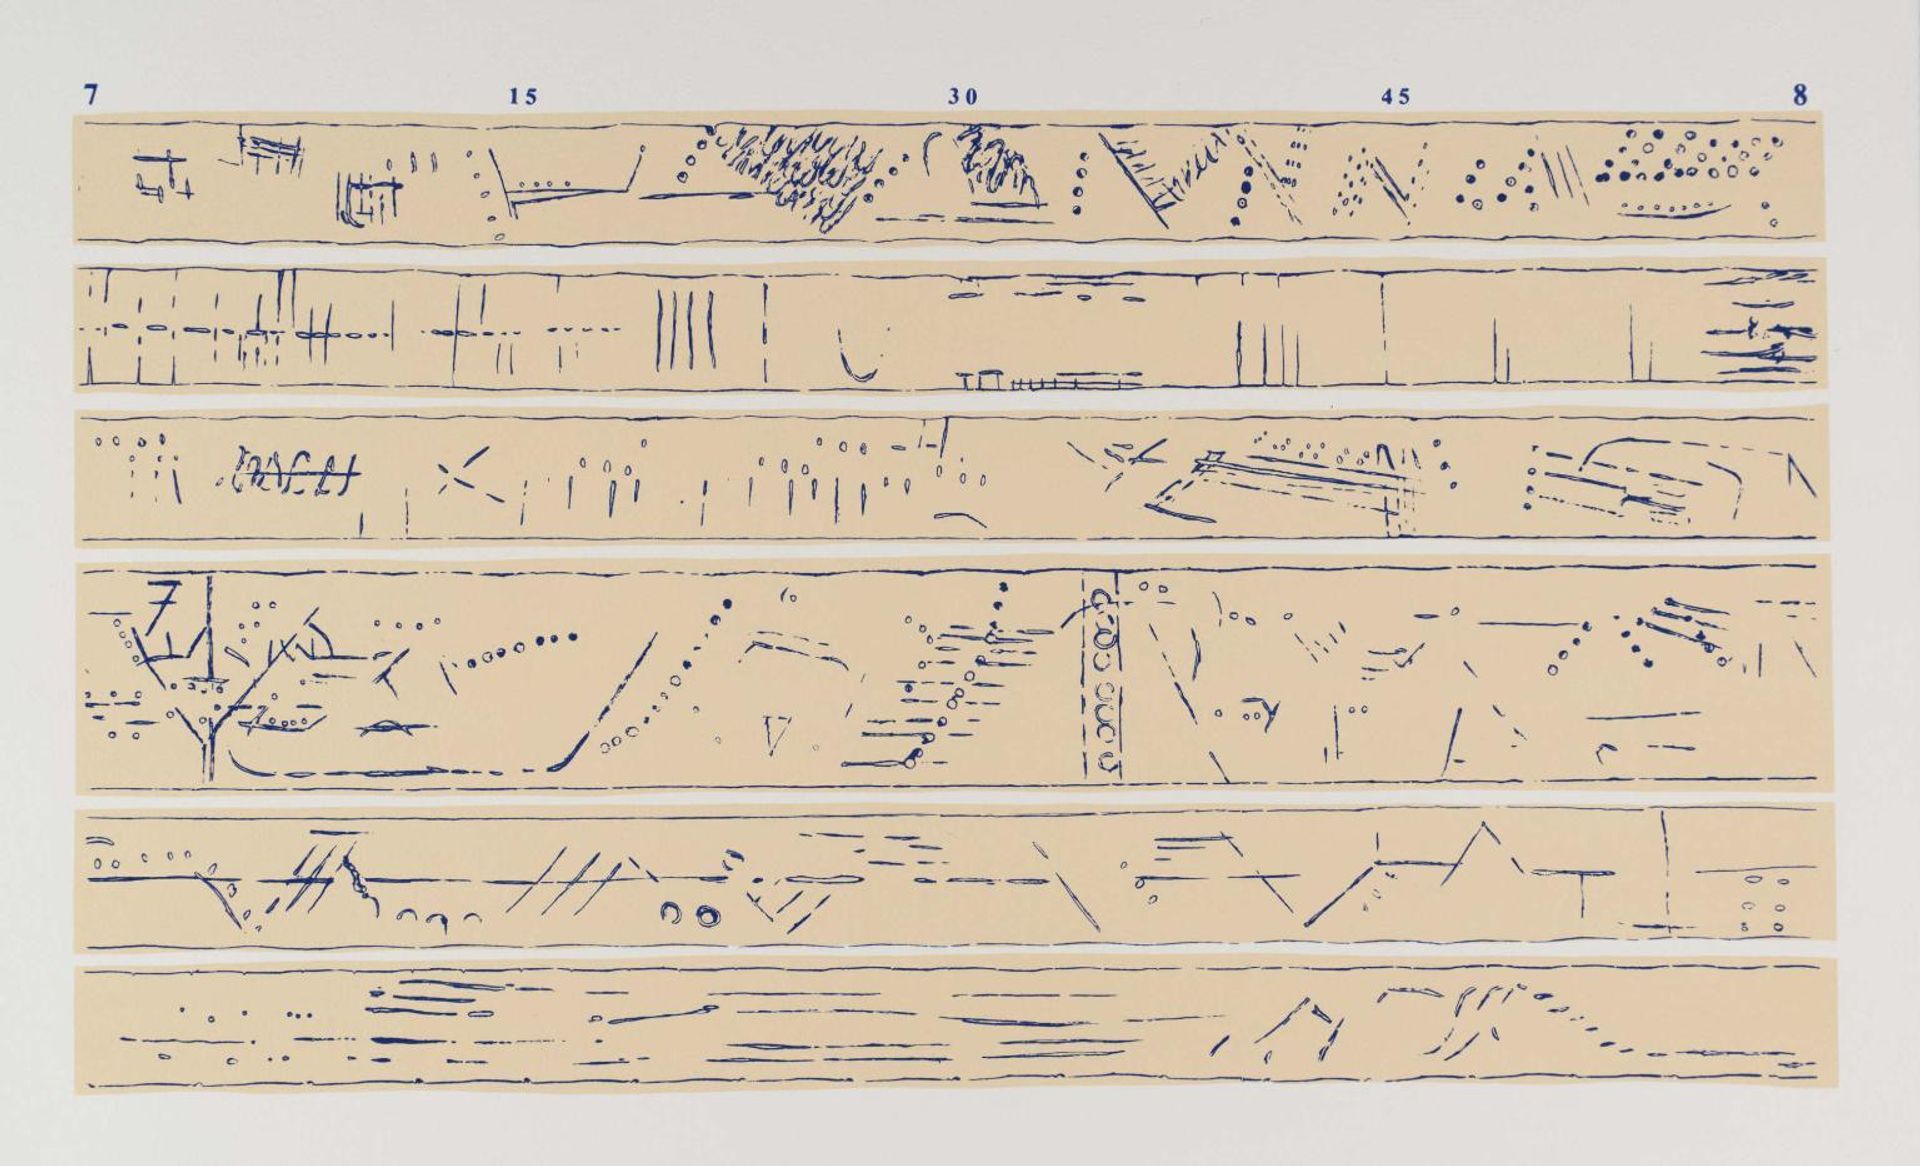 7 15 30 45 8
7
V